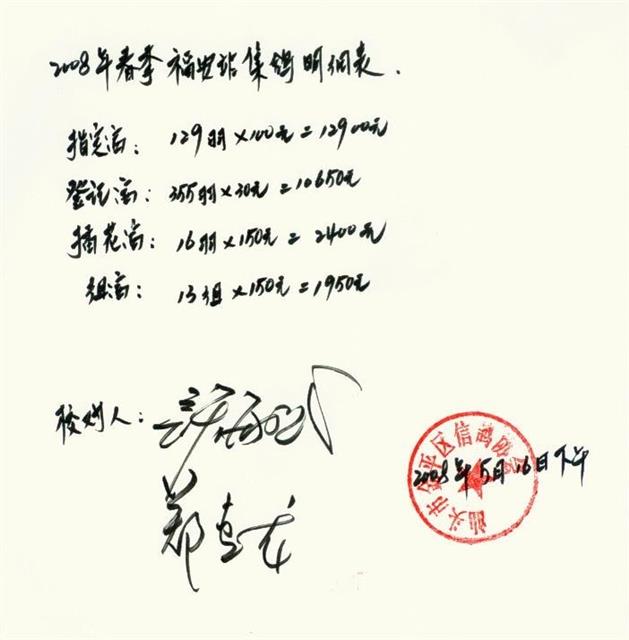 2008年春季福安站集鸽明细表.
指定鸽: 129羽×100元=12900元
登记鸽: 355羽×30元=10650元
插花鸽: 16羽×150元=2400元
组鸽: 13组×150元=1950元
校对人:
郑
汕头市金平区信鸽协会
2008年5月16日下午